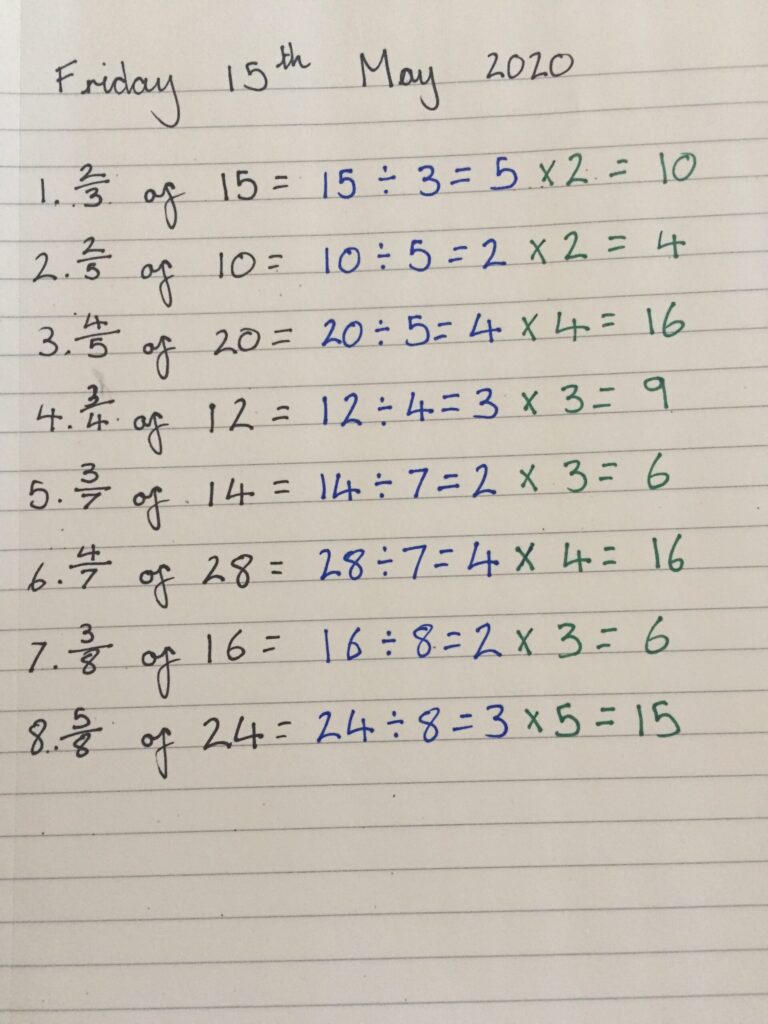 Friday 15th May 2020
1. 2/3 of 15 = 15 ÷ 3 = 5 × 2 = 10
2. 2/5 of 10 = 10 ÷ 5 = 2 × 2 = 4
3. 4/5 of 20 = 20 ÷ 5 = 4 × 4 = 16
4. 3/4 of 12 = 12 ÷ 4 = 3 × 3 = 9
5. 3/7 of 14 = 14 ÷ 7 = 2 × 3 = 6
6. 4/7 of 28 = 28 ÷ 7 = 4 × 4 = 16
7. 3/8 of 16 = 16 ÷ 8 = 2 × 3 = 6
8. 5/8 of 24 = 24 ÷ 8 = 3 × 5 = 15